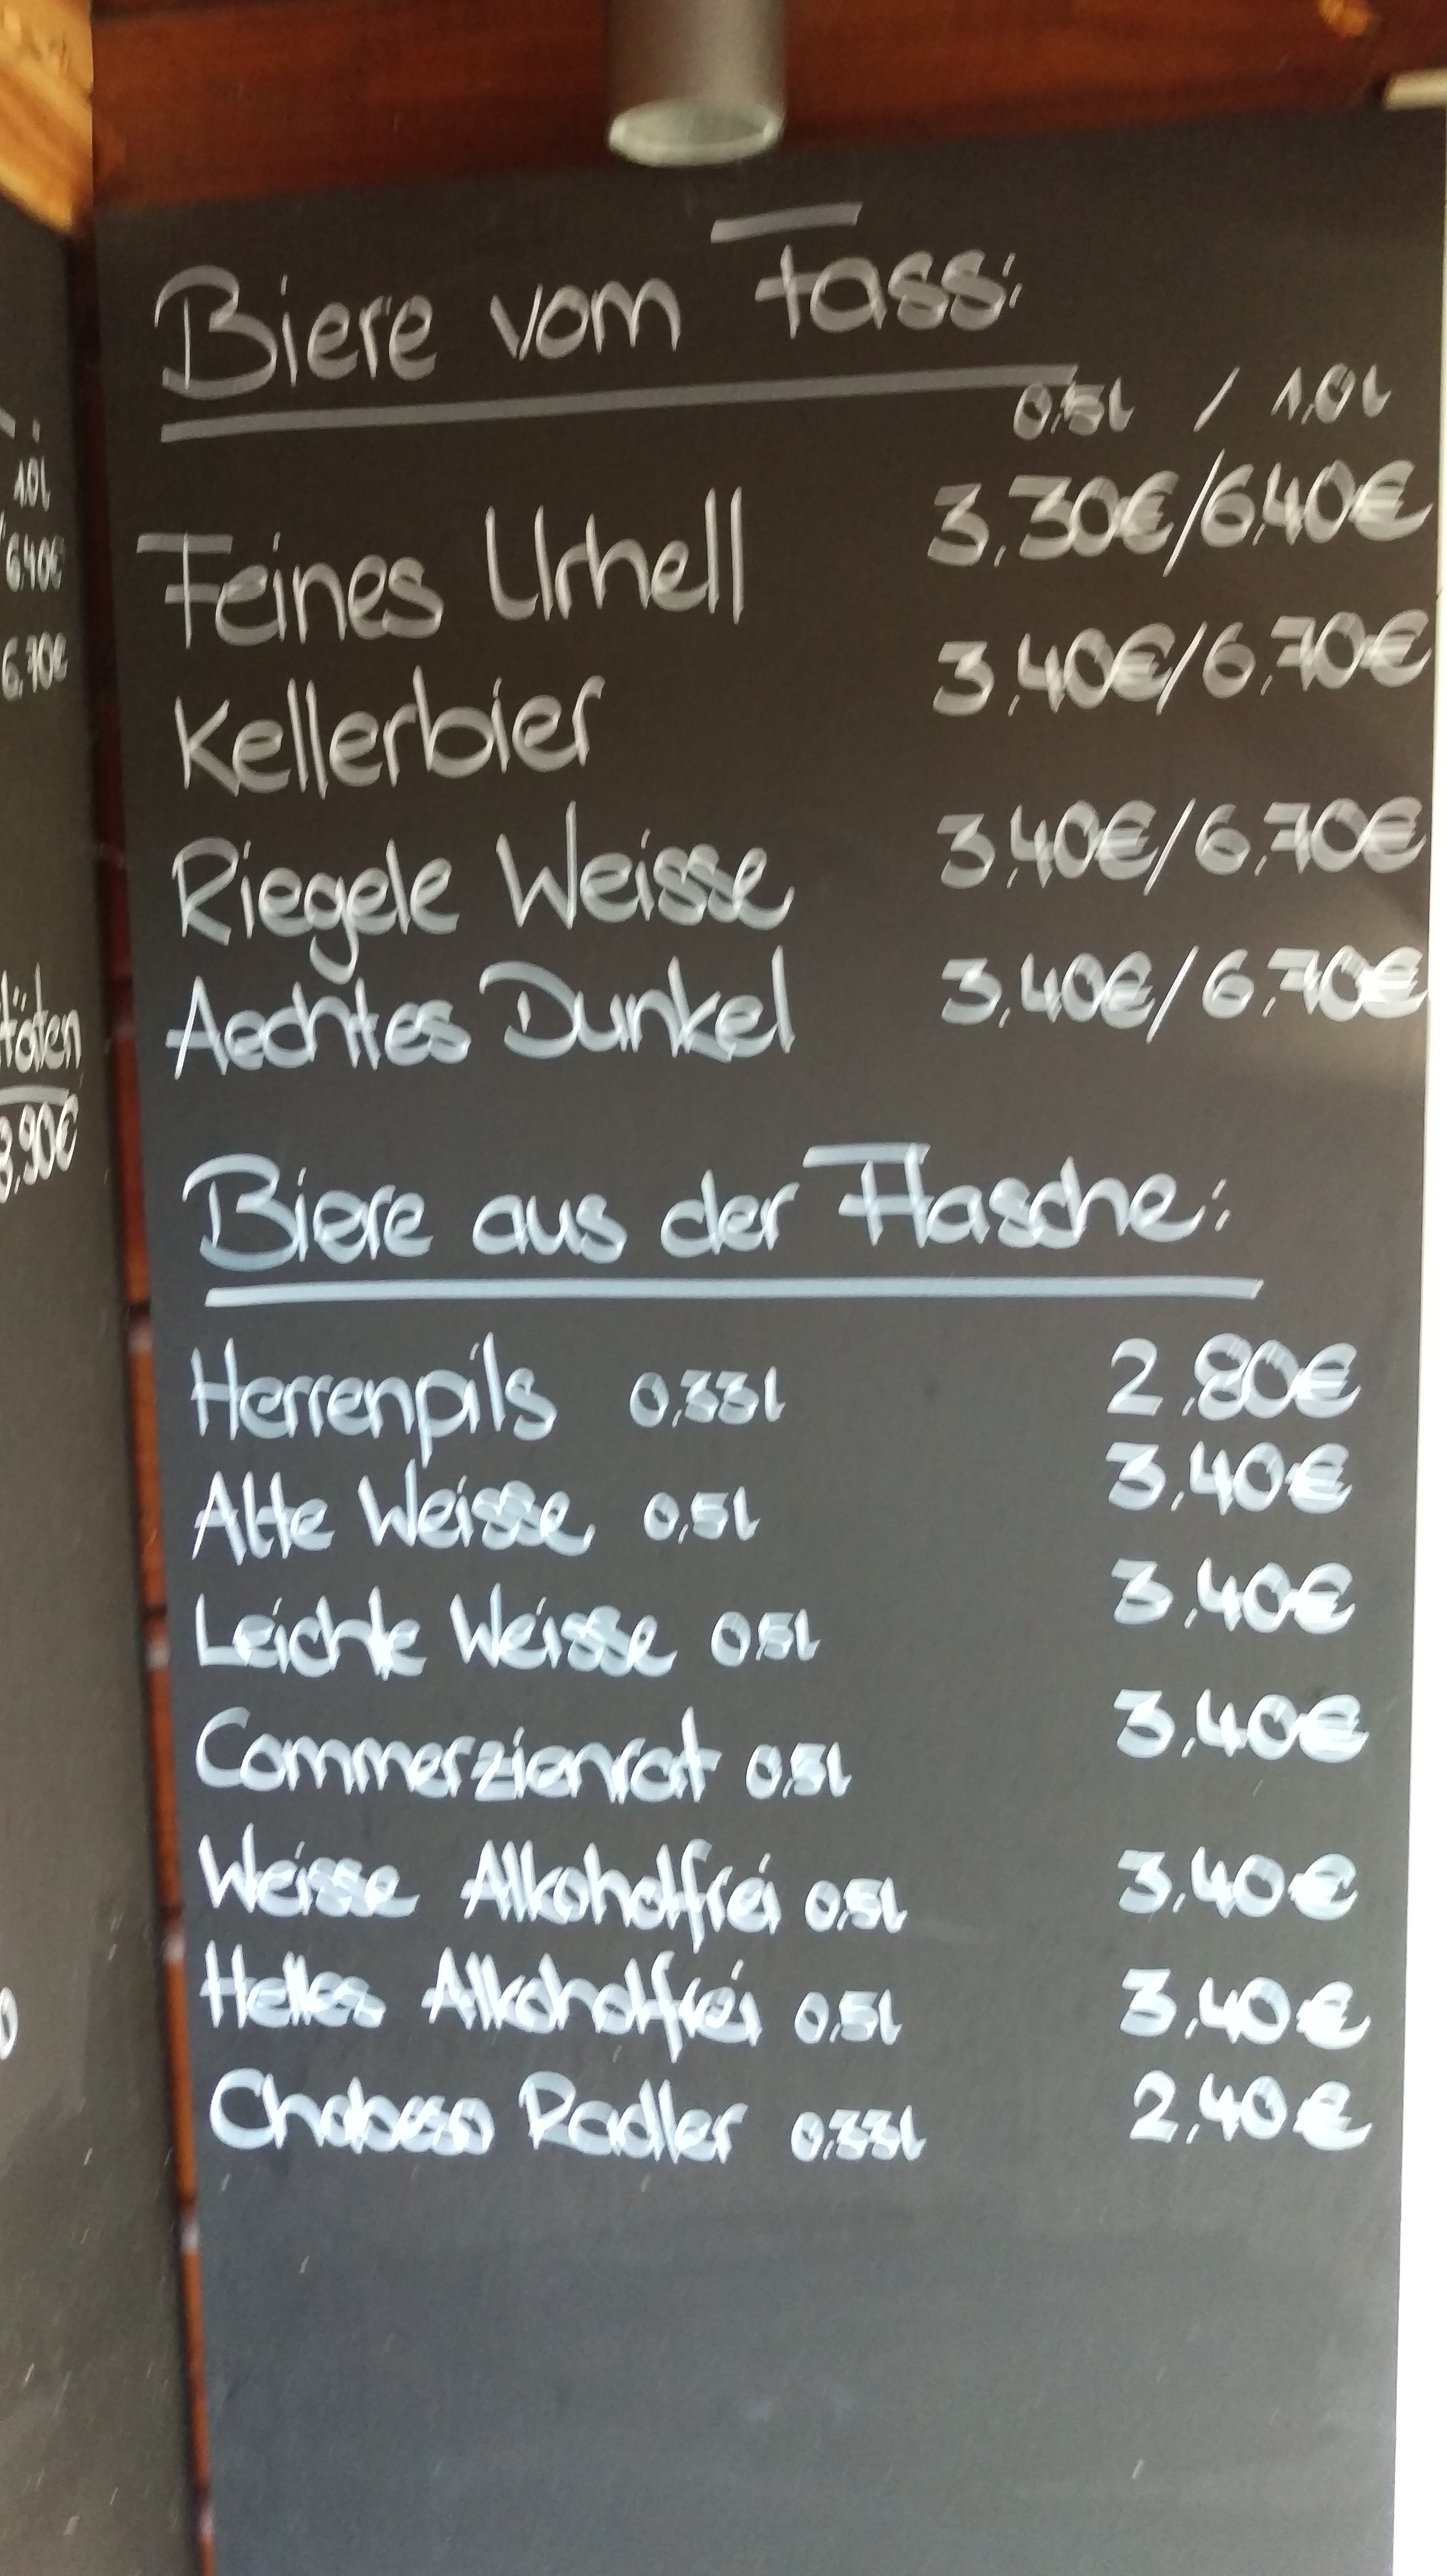 Biere vom Fass:
0,5l / 1,0l
Feines Urhell 3,30€/6,40€
Kellerbier 3,40€/6,70€
Riegele Weisse 3,40€/6,70€
Aechtes Dunkel 3,40€/6,70€
Biere aus der Flasche:
Herrenpils 0,33l 2,80€
Alte Weisse 0,5l 3,40€
Leichte Weisse 0,5l 3,40€
Commerzienrat 0,5l 3,40€
Weisse Alkoholfrei 0,5l 3,40€
Helles Alkoholfrei 0,5l 3,40€
Chabeso Radler 0,33l 2,40€
1,0l
6,40€
6,70€